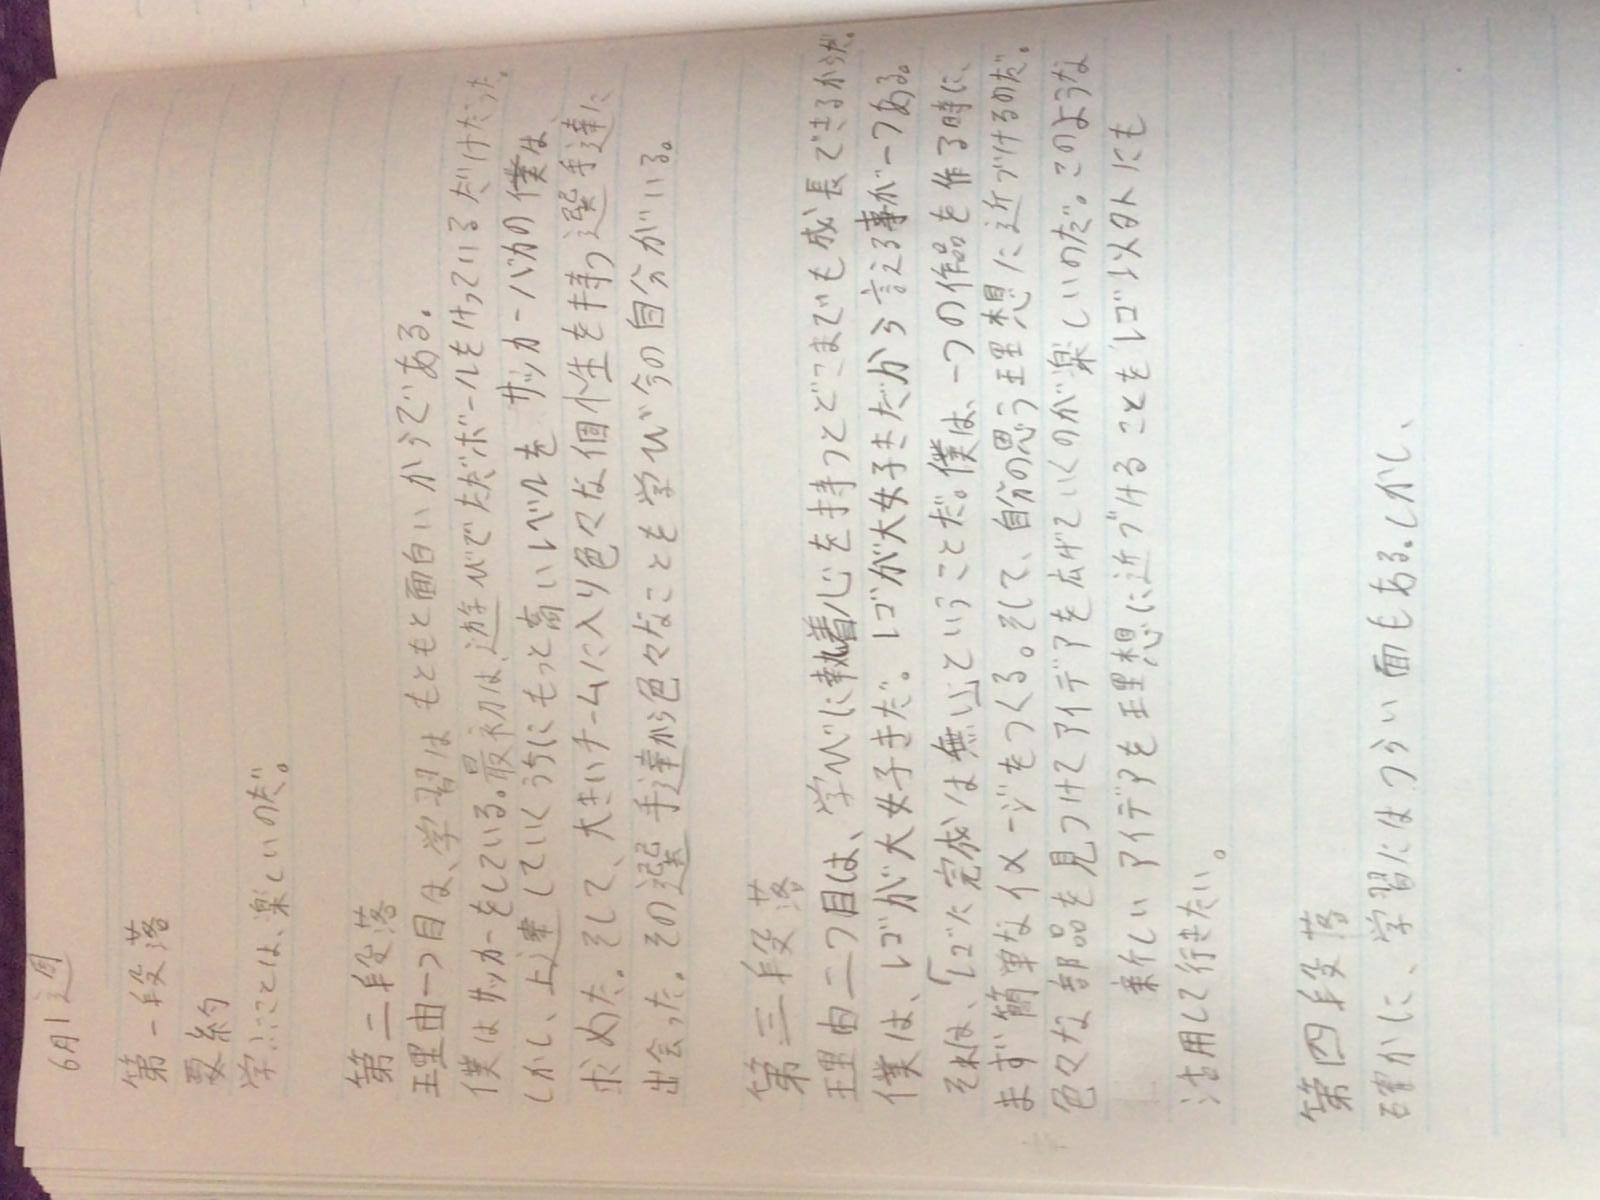 6月1週
第一段落
要約
学ぶことは、楽しいのだ。
第二段落
理由一つ目は、学習はもともと面白いからである。
僕はサッカーをしている。最初は、遊びでただボールをけっているだけだった。
しかし、上達していくうちにもっと高いレベルを サッカーバカの僕は、
求めた。そして、大きいチームに入り色々な個性を持つ選手達に
出会った。その選手達から色々なことも学び今の自分がいる。
第三段落
理由二つ目は、学べに執着心を持つとどこまでも成長できるからだ。
僕は、レゴが大好きだ。レゴが大好きだから言える事が一つある。
それは、「レゴに完成は無い」ということだ。僕は、一つの作品を作る時に、
まず簡単なイメージをつくる。そして、自分の思う理想に近づけるのだ。
色々な部品を見つけてアイデアを広げていくのが楽しいのだ。このような
新しいアイデアを理想に近づけることをレゴ以外にも
活用して行きたい。
第四段落
確かに、学習にはつらい面もある。しかし、